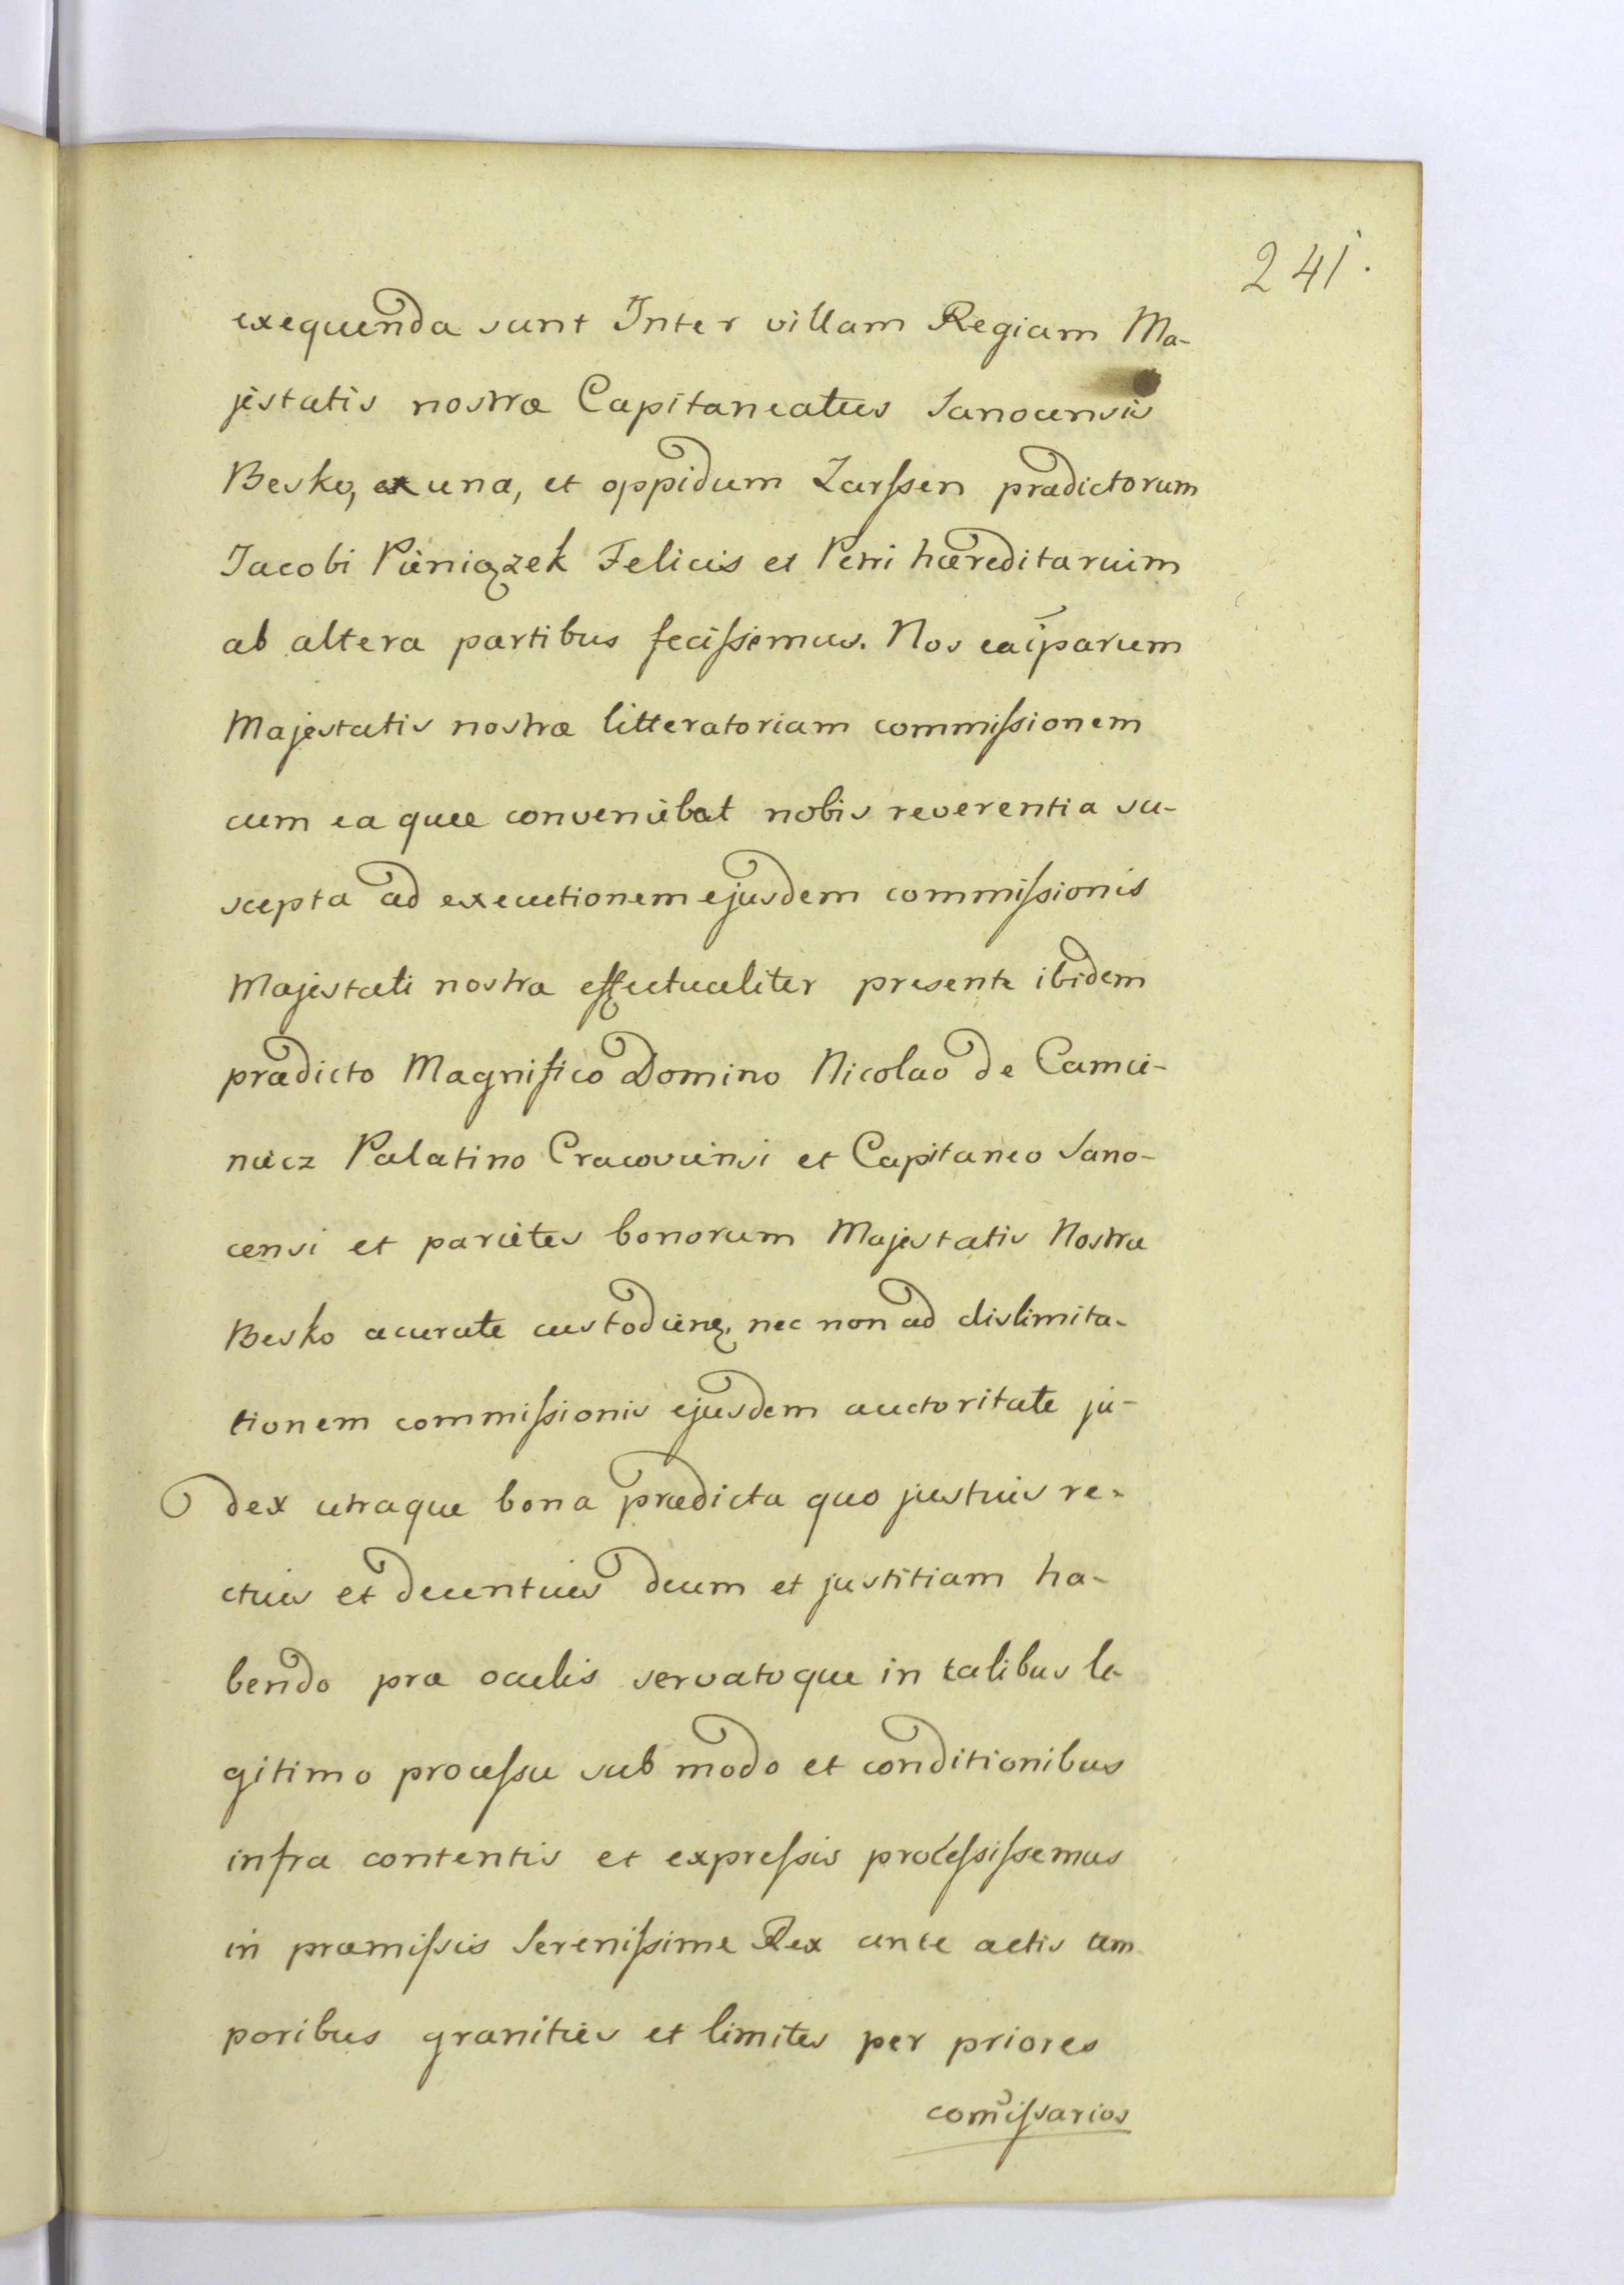 241.
exequenda sunt Inter villam Regiam Ma-
jestatis nostræ Capitaneatus Sanocensis
Besko, ex una, et oppidum Zarssen prædictorum
Jacobi Pieniązek Felicis et Petri hæreditarium
ab altera partibus fecissemus. Nos
Majestatis nostræ litteratoriam commissionem
cum ea quæ conveniebat nobis reverentia su-
scepta ad executionem ejusdem commissionis
Majestati nostra effectualiter presente ibidem
prædicto Magnifico Domino Nicolao de Camie-
niecz Palatino Cracoviensi et Capitaneo Sano-
censi et parietes bonorum Majestatis Nostra
Besko acurate nec non ad dislimita-
tionem commissionis ejusdem auctoritate ju-
dex utraque bona prædicta quo justius re-
ctius et decentius deum et justitiam ha-
bendo præ oculis servatoque in talibus le-
gitimo processu sub modo et conditionibus
infra contentis et expressis processissemus
in præmissis Serenissime Rex ante actis tem
poribus granities et limites per priores
comissarios